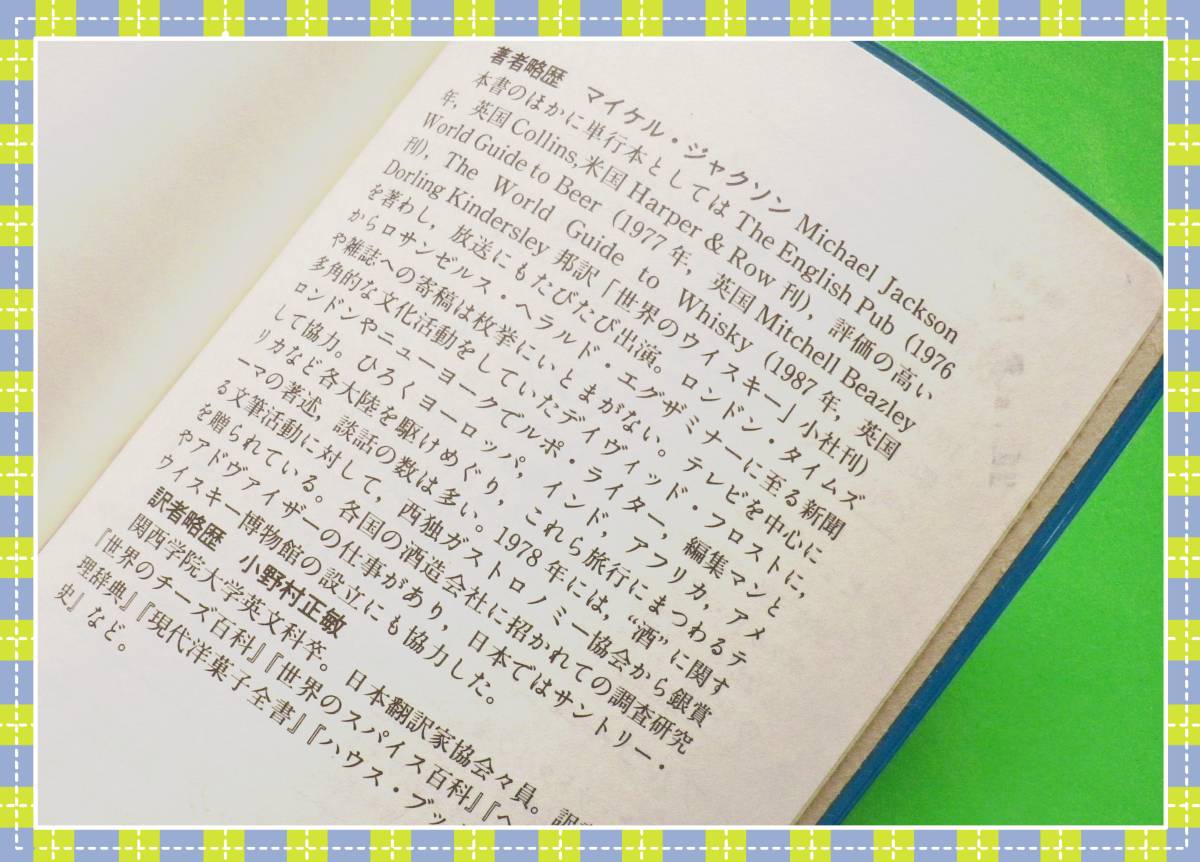 著者略歴　マイケル・ジャクソン Michael Jackson
本書のほかに単行本としては The English Pub (1976
年，英国 Collins, 米国 Harper & Row 刊)，評価の高い
World Guide to Beer (1977 年，英国 Mitchell Beazley
刊)，The World Guide to Whisky (1987 年，英国
Dorling Kindersley 邦訳「世界のウイスキー」小社刊)
を著わし，放送にもたびたび出演。ロンドン・タイムズ
からロサンゼルス・ヘラルド・エグザミナーに至る新聞
や雑誌への寄稿は枚挙にいとまがない。テレビを中心に
多角的な文化活動をしていたデイヴィッド・フロストに，
ロンドンやニューヨークでルポ・ライター，編集マンと
して協力。ひろくヨーロッパ，インド，アフリカ，アメ
リカなど各大陸を駆けめぐり，これら旅行にまつわるテ
ーマの著述，談話の数は多い。1978 年には，“酒”に関す
る文筆活動に対して，西独ガストロノミー協会から銀賞
を贈られている。各国の酒造会社に招かれての調査研究
やアドヴァイザーの仕事があり，日本ではサントリー・
ウイスキー博物館の設立にも協力した。
訳者略歴　小野村正敏
関西学院大学英文科卒。日本翻訳家協会々員。訳
『世界のチーズ百科』『世界のスパイス百科』『
理辞典』『現代洋菓子全書』『ハウス・ブッ
史』など。